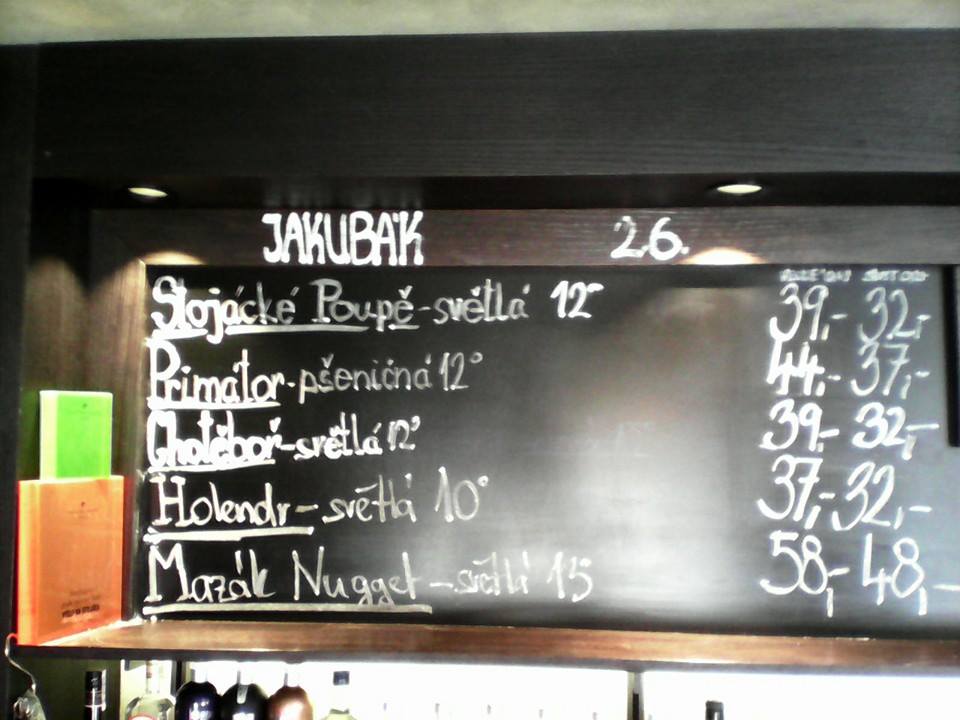 JAKUBÁK 2.6.
Slojácké Poupě-světlá 12° 39,- 32,-
Primátor-pšeničná 12° 44,- 37,-
Chotěboř-světlá 12° 39,- 32,-
Holendr-světlá 10° 37,- 32,-
Mazák Nugget-světlá 15 58,- 48,-